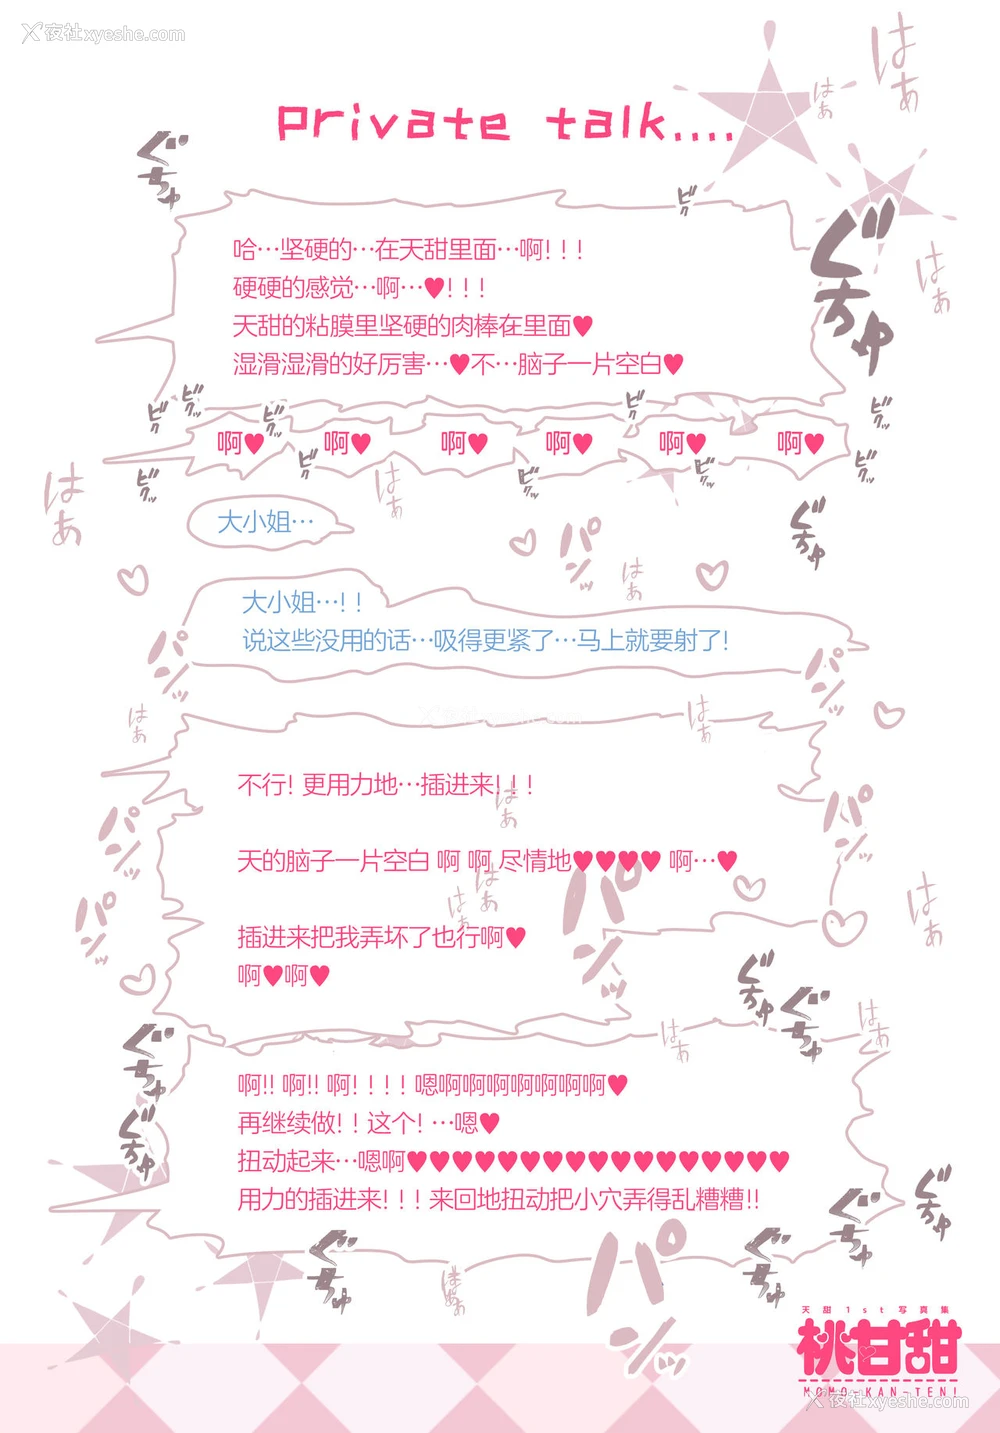 夜社xyeshe.com
private talk....
哈…坚硬的…在天甜里面…啊!!!
硬硬的感觉…啊…♥!!!
天甜的粘膜里坚硬的肉棒在里面♥
湿滑湿滑的好厉害…♥不…脑子一片空白♥
啊♥ 啊♥ 啊♥ 啊♥ 啊♥ 啊♥
大小姐…
大小姐…!!
说这些没用的话…吸得更紧了…马上就要射了!
不行!更用力地…插进来!!!
天的脑子一片空白 啊 啊 尽情地♥♥♥♥ 啊…♥
插进来把我弄坏了也行啊♥
啊♥啊♥
啊!! 啊!! 啊!!!! 嗯啊啊啊啊啊啊啊♥
再继续做!!这个!…嗯♥
扭动起来…嗯啊♥♥♥♥♥♥♥♥♥♥♥♥♥♥♥♥♥
用力的插进来!!!来回地扭动把小穴弄得乱糟糟!!
はぁ
はぁ
ぐちゅ
ビク
ぐちゅ
はぁ
ビクッ
ビクッ
ビクッ
はぁ
はぁ
パンッ
ぐちゅ
はぁ
パンッ
パンッ
はぁ
はぁ
はぁ
パンッ
パンッ
はぁ
はぁ
パンッ
パンッ
はぁ
ぐちゅ
ぐちゅ
はぁ
はぁ
ぐちゅ
ぐちゅ
ぐちゅ
ぐちゅ
ぐちゅ
ぐちゅ
パンッ
はぁ
天甜1st写真集
桃甘甜
MOMO-KAN-TEN!
夜社xyeshe.com